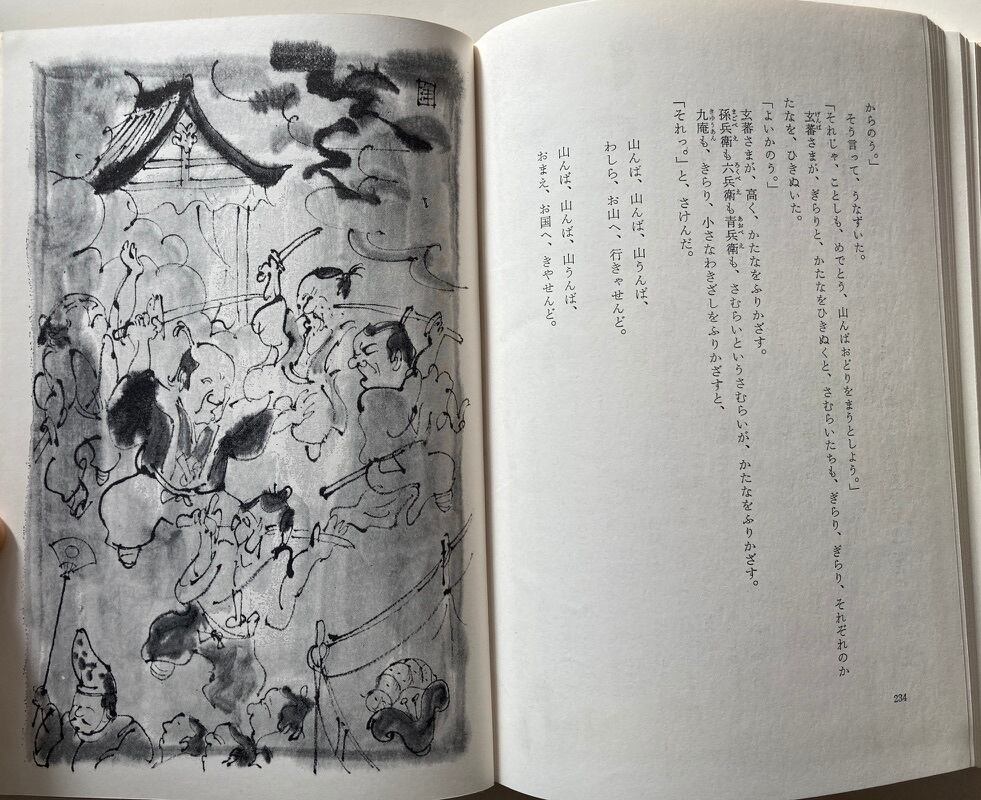 からのう。」
そう言って、うなずいた。
「それじゃ、ことしも、めでとう、山んばおどりをまうとしよう。」
玄蕃さまが、ぎらりと、かたなをひきぬくと、さむらいたちも、ぎらり、ぎらり、それぞれのか
たなを、ひきぬいた。
「よいかのう。」
玄蕃さまが、高く、かたなをふりかざす。
孫兵衛も六兵衛も青兵衛も、さむらいというさむらいが、かたなをふりかざす。
九庵も、きらり、小さなわきざしをふりかざすと、
「それっ。」と、さけんだ。
山んば、山んば、山うんば、
わしら、お山へ、行きゃせんど。
山んば、山んば、山うんば、
おまえ、お国へ、きゃせんど。
234